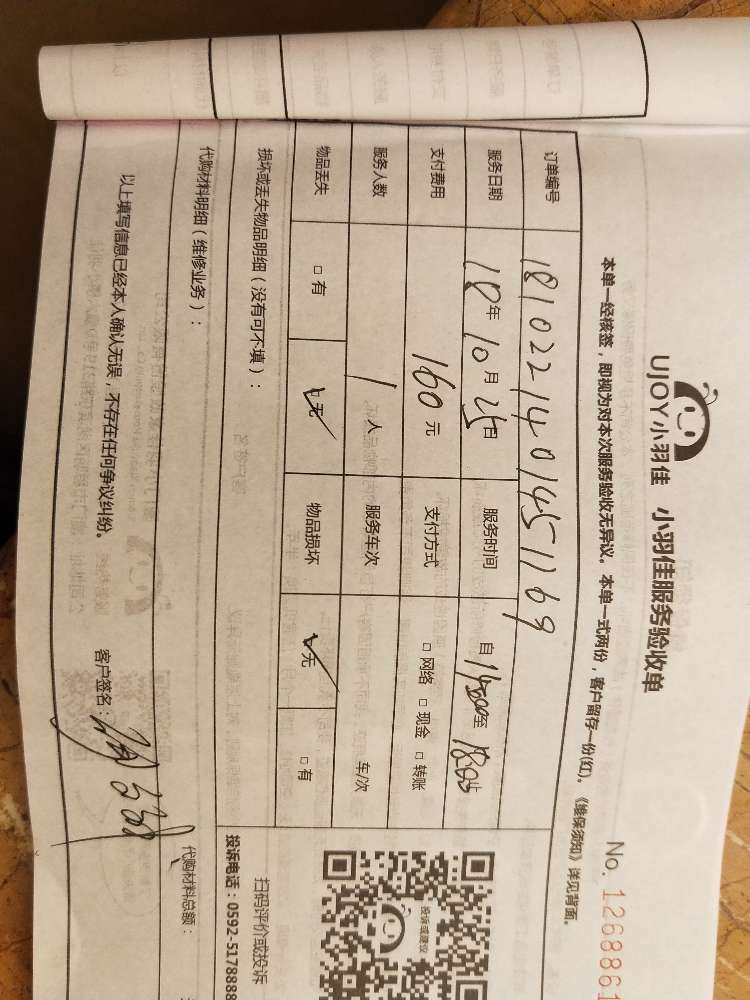 UJOY小羽佳 小羽佳服务验收单
No. 1268861
本单一经核签，即视为对本次服务验收无异议。本单一式两份，客户留存一份(红)。《维保须知》详见背面。
订单编号 1810221401451169
服务日期 18年10月25日 服务时间 自14:00至18:00止
支付费用 160元 支付方式 □网络 □现金 □转账
服务人数 1人 服务车次 车/次
物品丢失 □有 □无 物品损坏 □无 □有
损坏或丢失物品明细（没有可不填）：
扫码评价或投诉
投诉电话：0592-5178888
投诉或建议
代购材料明细（维修业务）：
代购材料总额：
以上填写信息已经本人确认无误，不存在任何争议纠纷。 客户签名：